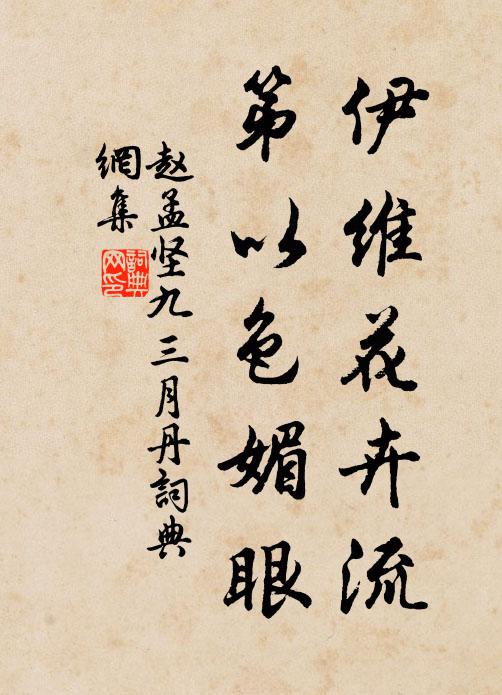 伊维花卉流
第以色媚眼
赵孟坚九三月丹詞典
網集
詞典
网印